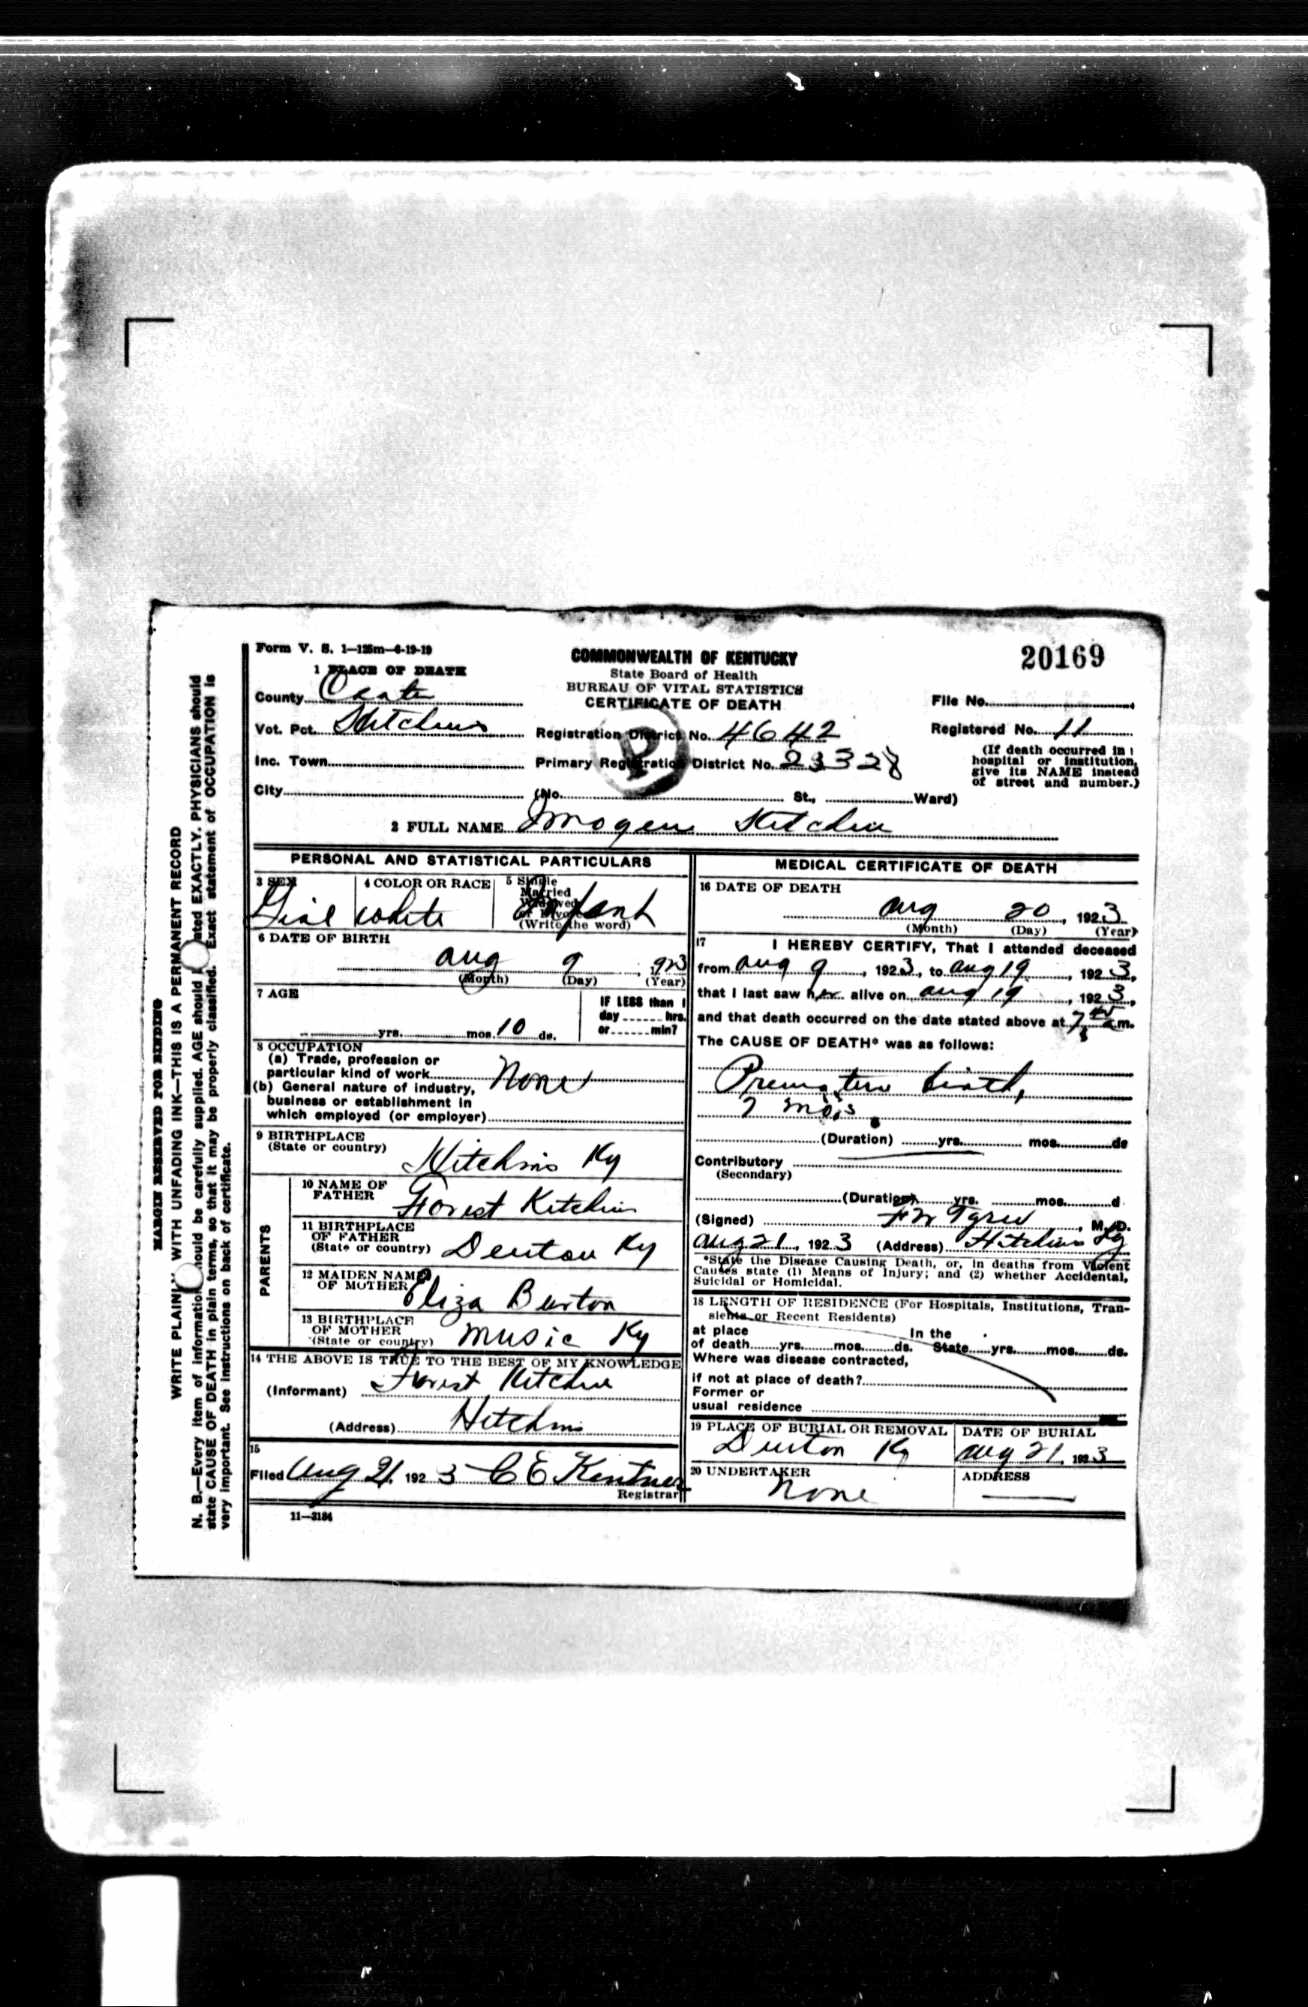 Form V. S. 1—125m—6-19-19
1 PLACE OF DEATH
County Carter
Vot. Pct. Hitchins
Inc. Town
City
COMMONWEALTH OF KENTUCKY
State Board of Health
BUREAU OF VITAL STATISTICS
CERTIFICATE OF DEATH
Registration District No. 4642
Primary Registration District No. 23328
P
(No. St., Ward)
20169
File No.
Registered No. 11
(If death occurred in
hospital or institution,
give its NAME instead
of street and number.)
2 FULL NAME Imogen Kitchin
PERSONAL AND STATISTICAL PARTICULARS
3 SEX
Girl
4 COLOR OR RACE
White
5 Single
Married
Widowed
or Divorced
(Write the word)
Infant
6 DATE OF BIRTH
Aug 9, 1923
(Month) (Day) (Year)
7 AGE
yrs. mos. 10 ds.
IF LESS than 1
day hrs.
or min?
8 OCCUPATION
(a) Trade, profession or
particular kind of work None
(b) General nature of industry,
business or establishment in
which employed (or employer)
9 BIRTHPLACE
(State or country) Hitchins Ky
PARENTS
10 NAME OF
FATHER Forest Kitchin
11 BIRTHPLACE
OF FATHER
(State or country) Denton Ky
12 MAIDEN NAME
OF MOTHER Eliza Burton
13 BIRTHPLACE
OF MOTHER
(State or country) Music Ky
14 THE ABOVE IS TRUE TO THE BEST OF MY KNOWLEDGE
(Informant) Forest Kitchin
(Address) Hitchins
15
Filed Aug 21, 1923 C E Kentner
Registrar
11—3184
MEDICAL CERTIFICATE OF DEATH
16 DATE OF DEATH
Aug 20, 1923
(Month) (Day) (Year)
17 I HEREBY CERTIFY, That I attended deceased
from Aug 9, 1923, to Aug 19, 1923,
that I last saw her alive on Aug 19, 1923,
and that death occurred on the date stated above at 7 a m.
The CAUSE OF DEATH* was as follows:
Premature birth,
7 mo's.
(Duration) yrs. mos. ds
Contributory
(Secondary)
(Duration) yrs. mos. d
(Signed) , M. D.
Aug 21, 1923 (Address) Hitchins Ky
*State the Disease Causing Death, or, in deaths from Violent
Causes state (1) Means of Injury; and (2) whether Accidental,
Suicidal or Homicidal.
18 LENGTH OF RESIDENCE (For Hospitals, Institutions, Tran-
sients or Recent Residents)
at place In the
of death yrs. mos. ds. State yrs. mos. ds.
Where was disease contracted,
if not at place of death?
Former or
usual residence
19 PLACE OF BURIAL OR REMOVAL
Denton Ky
DATE OF BURIAL
Aug 21, 1923
20 UNDERTAKER
None
ADDRESS
MARGIN RESERVED FOR BINDING
WRITE PLAINLY WITH UNFADING INK—THIS IS A PERMANENT RECORD
N. B.—Every item of information should be carefully supplied. AGE should be stated EXACTLY. PHYSICIANS should
state CAUSE OF DEATH in plain terms, so that it may be properly classified. Exact statement of OCCUPATION is
very important. See instructions on back of certificate.